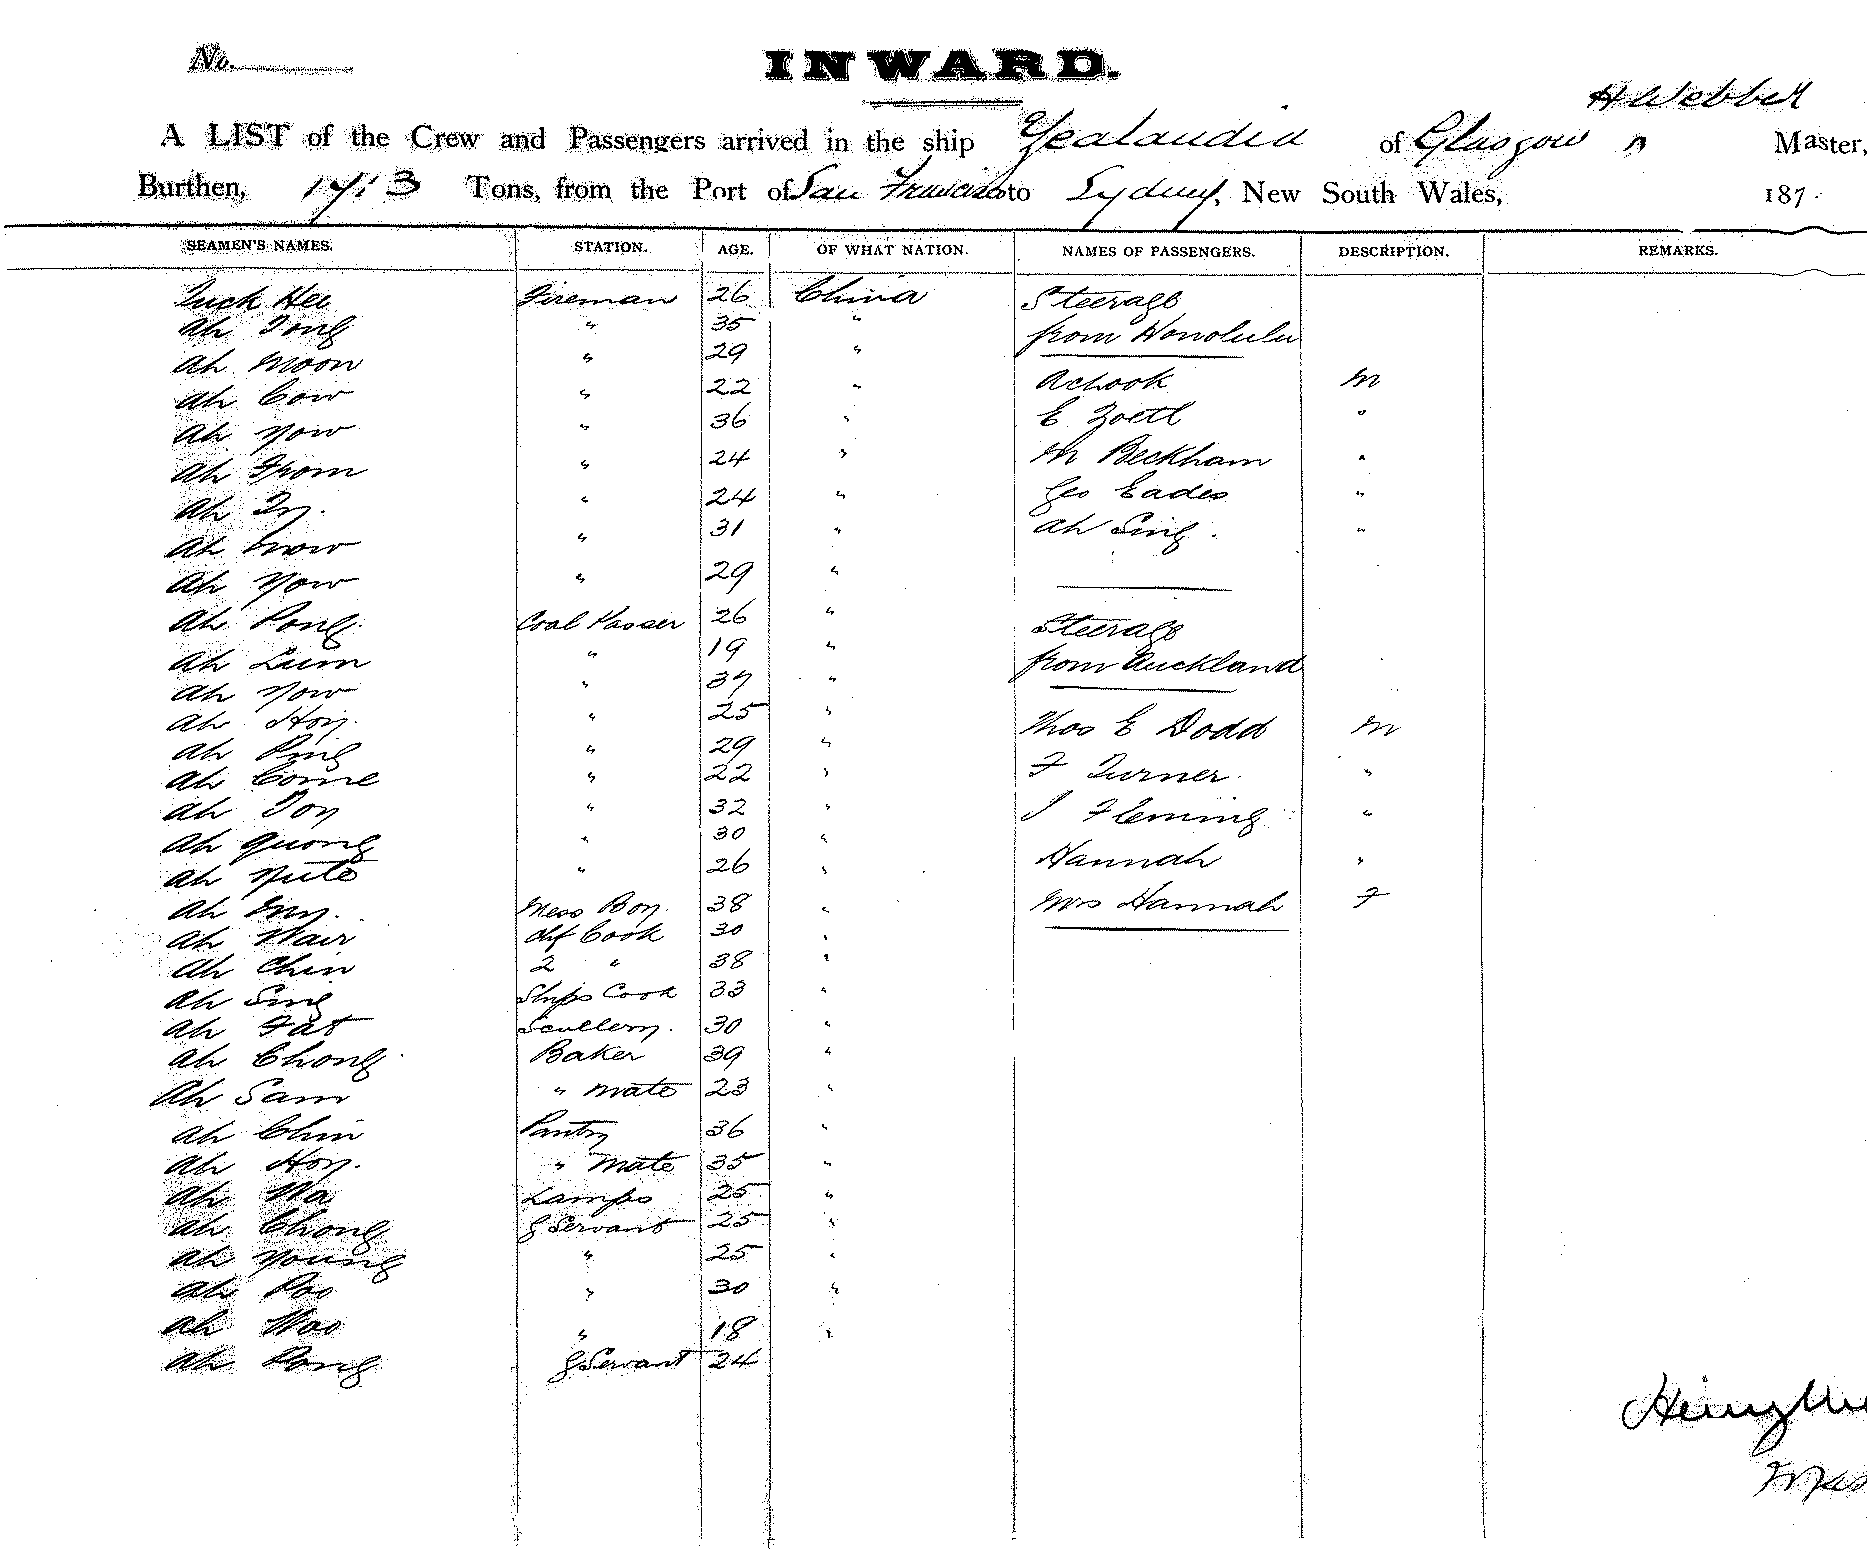 No.
INWARD.
H Webber
A LIST of the Crew and Passengers arrived in the ship Zealandia of Glasgow Master,
Burthen, Tons, from the Port of San Francisco to Sydney, New South Wales, 187
SEAMEN'S NAMES. STATION. AGE. OF WHAT NATION. NAMES OF PASSENGERS. DESCRIPTION. REMARKS.
Hee Fireman 26 China Steerage
Ah Tong " 35 " from Honolulu
Ah Moon " 29 "
Ah Cow " 22 " Achook M
Ah Yow " 36 " E Zoetl "
Ah " 24 " M Beckham "
Ah " 24 " Geo Eades "
Ah " 31 " Ah Sing "
Ah Yow " 29 "
Ah Pong Coal Passer 26 " Steerage
Ah Lum " 19 " from Auckland
Ah Yow " 37 "
Ah Hoy " 25 " Thos E Dodd M
Ah Ping " 29 "
Ah Come " 22 " F Turner "
Ah Toy " 32 " J Fleming "
Ah Quong " 30 "
Ah " 26 " Hannah "
Ah My Mess Boy 38 " Mrs Hannah F
Ah Chf Cook 30 "
Ah Chin 2 " 38 "
Ah Sing Ships Cook 33 "
Ah Fat Scullery 30 "
Ah Chong Baker 39 "
Ah Sam " mate 23 "
Ah Chin Pantry 36 "
Ah Hoy " mate 35 "
Ah Wa Lamps 25 "
Ah Chong G Servant 25 "
Ah Young " 25 "
Ah Poo " 30 "
Ah Woo " 18 "
Ah Pong G Servant 24
Henry